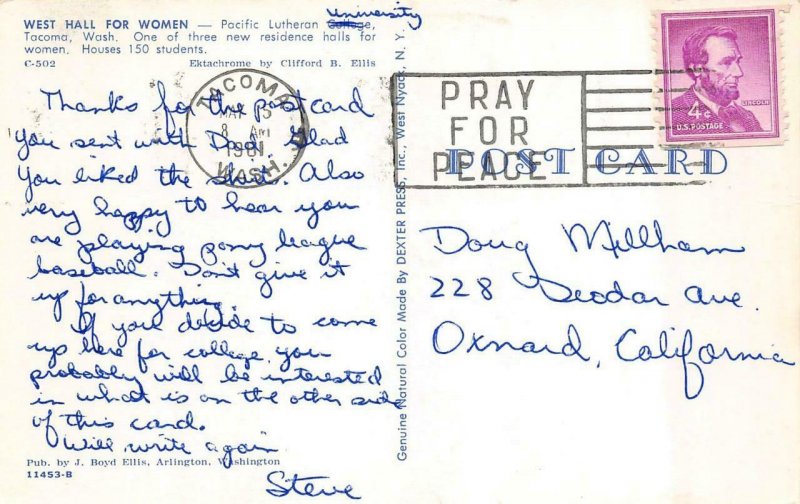 WEST HALL FOR WOMEN — Pacific Lutheran College, University
Tacoma, Wash. One of three new residence halls for
women. Houses 150 students.
C-502 Ektachrome by Clifford B. Ellis
Thanks for the postcard
you sent with Dad. Glad
you liked the shirt. Also
very happy to hear you
are playing pony league
baseball. Don't give it
up for anything.
If you decide to come
up here for college, you
probably will be interested
in what is on the other side
of this card.
Will write again
Steve
Pub. by J. Boyd Ellis, Arlington, Washington
11453-B
Genuine Natural Color Made By DEXTER PRESS, Inc., West Nyack, N. Y.
TACOMA
MAY 15
8 AM
1961
WASH.
PRAY
FOR
PEACE
4¢
LINCOLN
U.S. POSTAGE
POST CARD
Doug Millham
228 Deodar Ave.
Oxnard, California